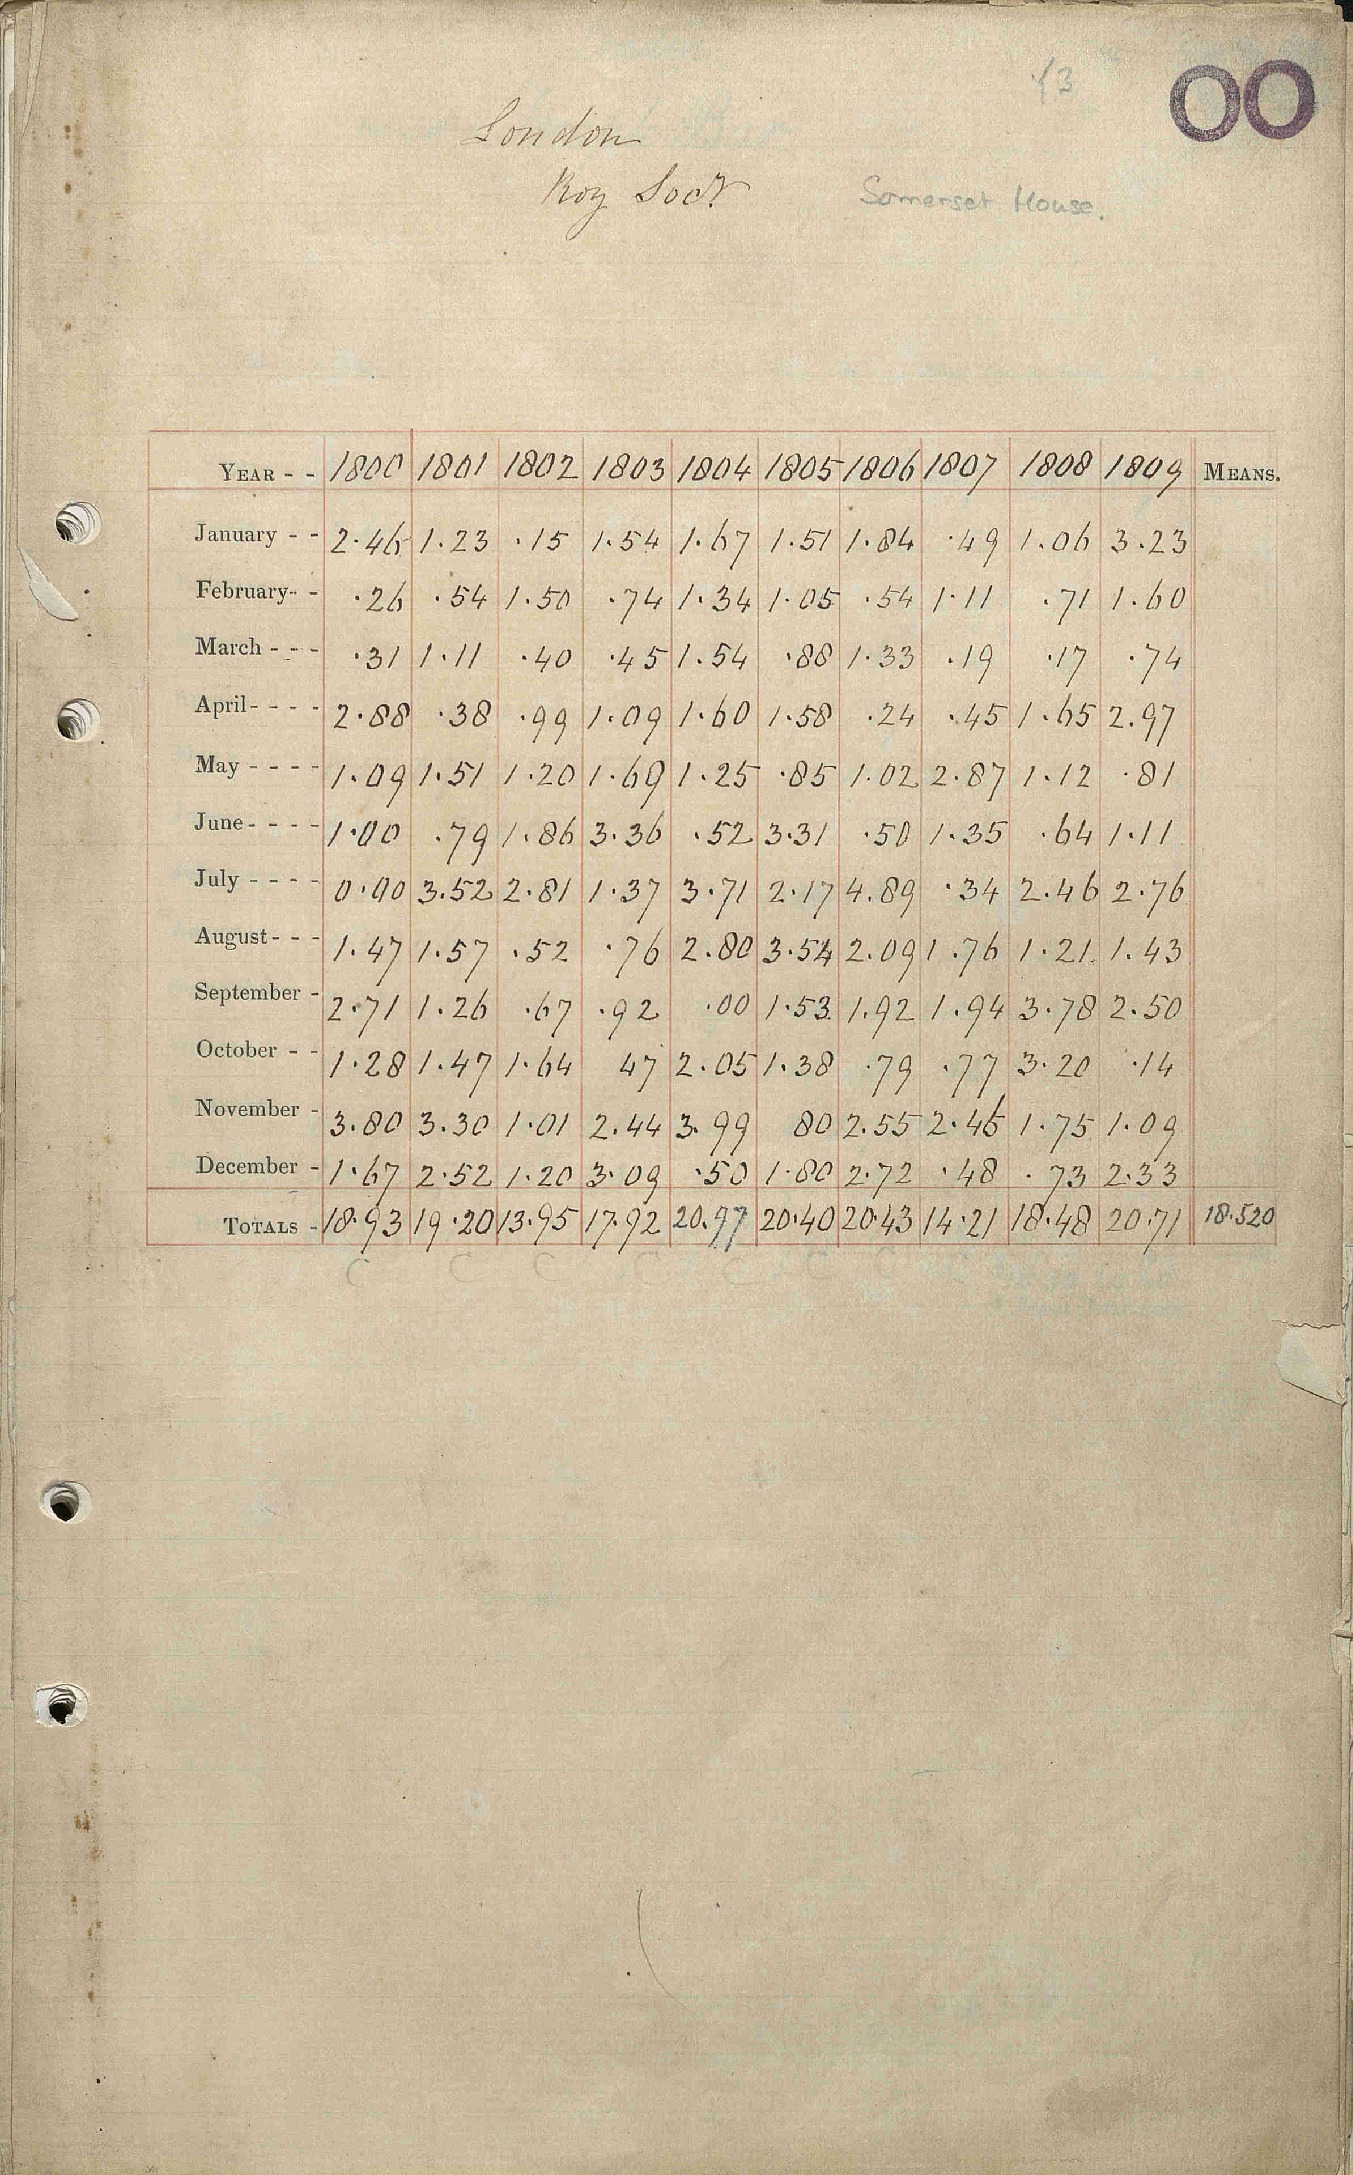 00
London
Roy Socy
Somerset House.
YEAR - - 1800 1801 1802 1803 1804 1805 1806 1807 1808 1809 MEANS.
January - - 2.46 1.23 .15 1.54 1.67 1.51 1.84 .49 1.06 3.23
February - - .26 .54 1.50 .74 1.34 1.05 .54 1.11 .71 1.60
March - - - .31 1.11 .40 .45 1.54 .88 1.33 .19 .17 .74
April - - - - 2.88 .38 .99 1.09 1.60 1.58 .24 .45 1.65 2.97
May - - - - 1.09 1.51 1.20 1.69 1.25 .85 1.02 2.87 1.12 .81
June - - - - 1.00 .79 1.86 3.36 .52 3.31 .50 1.35 .64 1.11
July - - - - 0.00 3.52 2.81 1.37 3.71 2.17 4.89 .34 2.46 2.76
August - - - 1.47 1.57 .52 .76 2.80 3.54 2.09 1.76 1.21 1.43
September - 2.71 1.26 .67 .92 .00 1.53 1.92 1.94 3.78 2.50
October - - 1.28 1.47 1.64 47 2.05 1.38 .79 .77 3.20 .14
November - 3.80 3.30 1.01 2.44 3.99 80 2.55 2.46 1.75 1.09
December - 1.67 2.52 1.20 3.09 .50 1.80 2.72 .48 .73 2.33
TOTALS - 18.93 19.20 13.95 17.92 20.97 20.40 20.43 14.21 18.48 20.71 18.520
C C C C C C C C